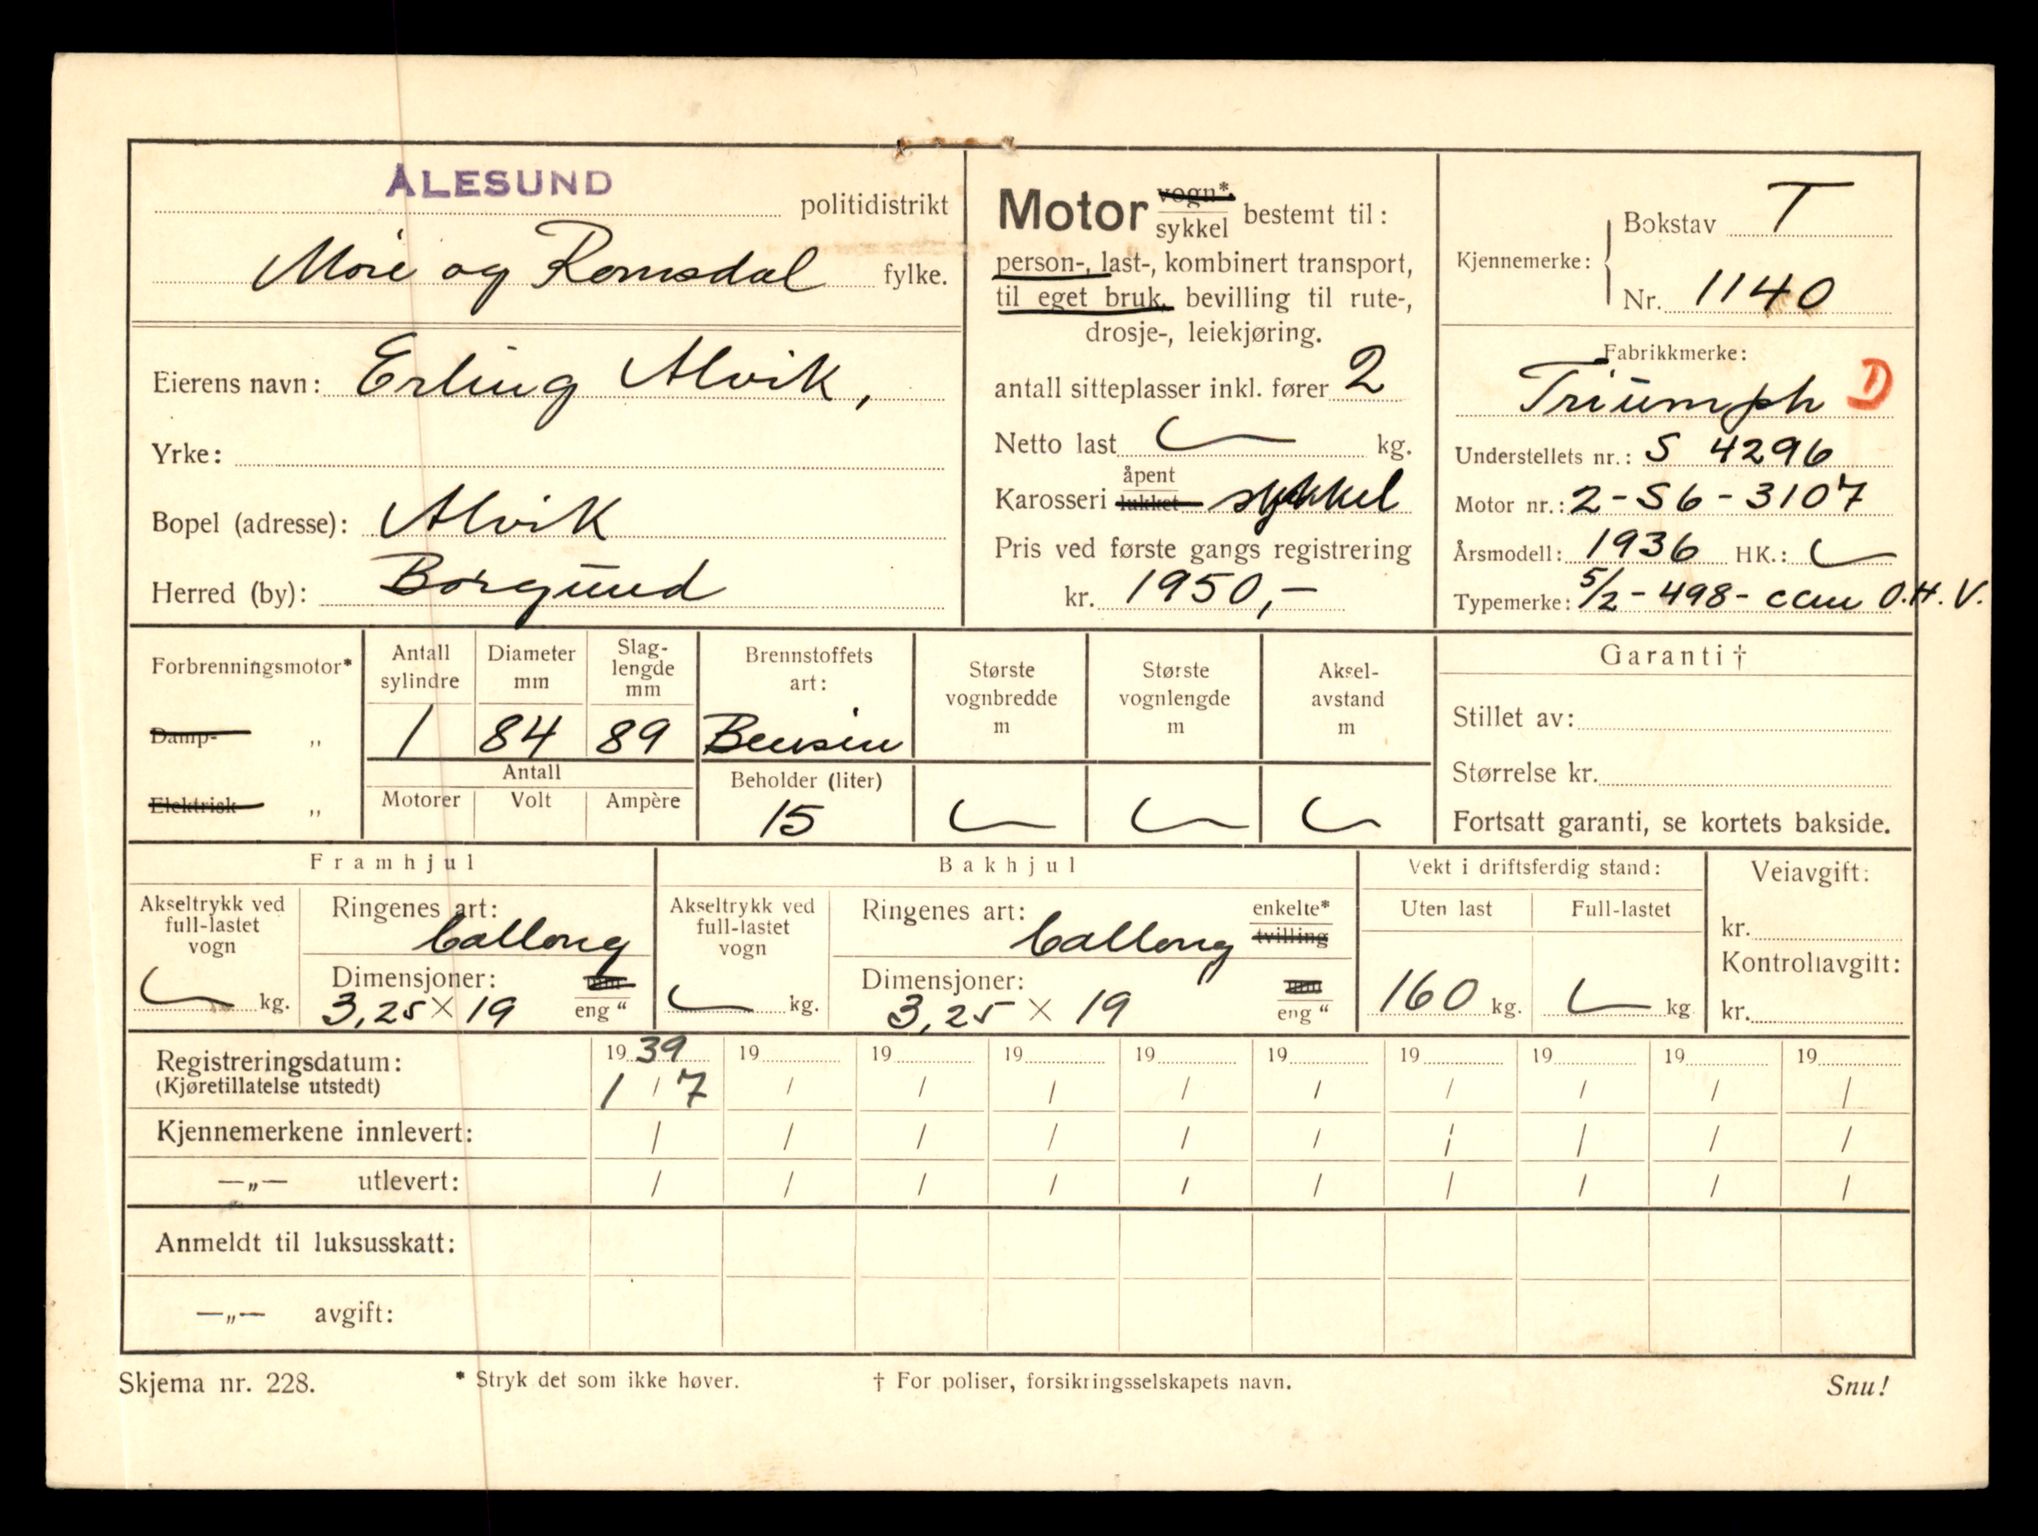 ÅLESUND politidistrikt
Møre og Romsdal fylke.
Eierens navn: Erling Alvik,
Yrke:
Bopel (adresse): Alvik
Herred (by): Borgund
Motor vogn*. sykkel bestemt til:
person-, last-, kombinert transport,
til eget bruk, bevilling til rute-,
drosje-, leiekjøring.
antall sitteplasser inkl. fører 2
Netto last kg.
Karosseri åpent lukket sykkel
Pris ved første gangs registrering
kr. 1950,-
Kjennemerke: Bokstav T
Nr. 1140
Fabrikkmerke:
Triumph D
Understellets nr.: S 4296
Motor nr.: 2-S6-3107
Årsmodell: 1936 HK.:
Typemerke: 5/2-498-ccm O.H.V.
Forbrenningsmotor*
Damp- „
Elektrisk „
Antall sylindre Diameter mm Slag-lengde mm
1 84 89
Antall
Motorer Volt Ampère
Brennstoffets art:
Bensin
Beholder (liter)
15
Største vognbredde m
Største vognlengde m
Aksel-avstand m
Garanti†
Stillet av:
Størrelse kr.
Fortsatt garanti, se kortets bakside.
Framhjul
Akseltrykk ved full-lastet vogn
kg.
Ringenes art:
ballong
Dimensjoner: mm
3,25 × 19 eng “
Bakhjul
Akseltrykk ved full-lastet vogn
kg.
Ringenes art: enkelte*
ballong tvilling
Dimensjoner: mm
3,25 × 19 eng “
Vekt i driftsferdig stand:
Uten last Full-lastet
160 kg. kg
Veiavgift:
kr.
Kontrollavgift:
kr.
Registreringsdatum: 19 39 19 19 19 19 19 19 19 19 19
(Kjøretillatelse utstedt) 1 / 7 / / / / / / / / /
Kjennemerkene innlevert: / / / / / / / / / /
—„— utlevert: / / / / / / / / / /
Anmeldt til luksusskatt:
—„— avgift:
Skjema nr. 228. * Stryk det som ikke høver. † For poliser, forsikringsselskapets navn. Snu!